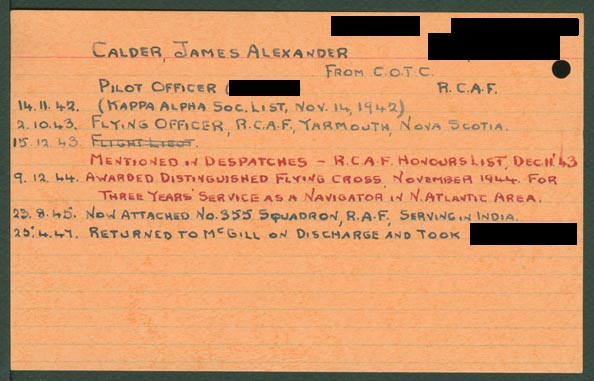 CALDER, JAMES ALEXANDER
FROM C.O.T.C.
PILOT OFFICER ( R.C.A.F.
14.11.42. (KAPPA ALPHA SOC. LIST, NOV. 14, 1942)
2.10.43. FLYING OFFICER, R.C.A.F., YARMOUTH, NOVA SCOTIA.
15.12.43. FLIGHT LIEUT.
MENTIONED IN DESPATCHES – R.C.A.F. HONOURS LIST, DEC. 11/43
9.12.44. AWARDED DISTINGUISHED FLYING CROSS, NOVEMBER 1944. FOR
THREE YEARS' SERVICE AS A NAVIGATOR IN N. ATLANTIC AREA.
23.8.45. NOW ATTACHED NO. 355 SQUADRON, R.A.F., SERVING IN INDIA.
25.4.47. RETURNED TO MCGILL ON DISCHARGE AND TOOK